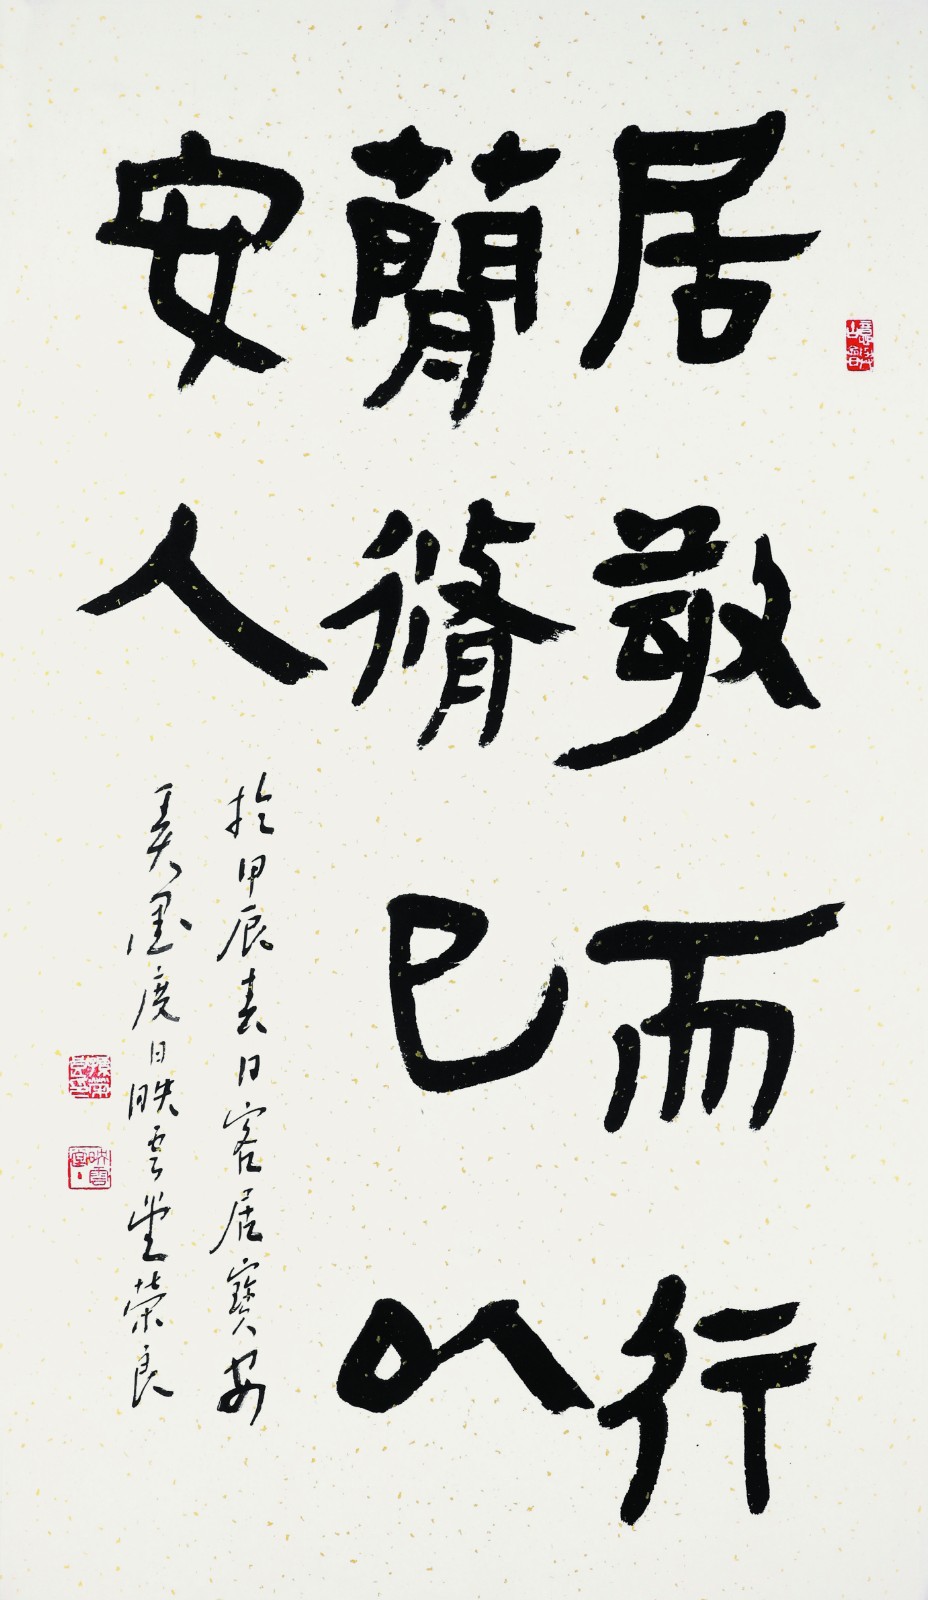 居敬而行
簡脩己以
安人
於甲辰春日客居寶安
吴墨度日映雲堂荣良